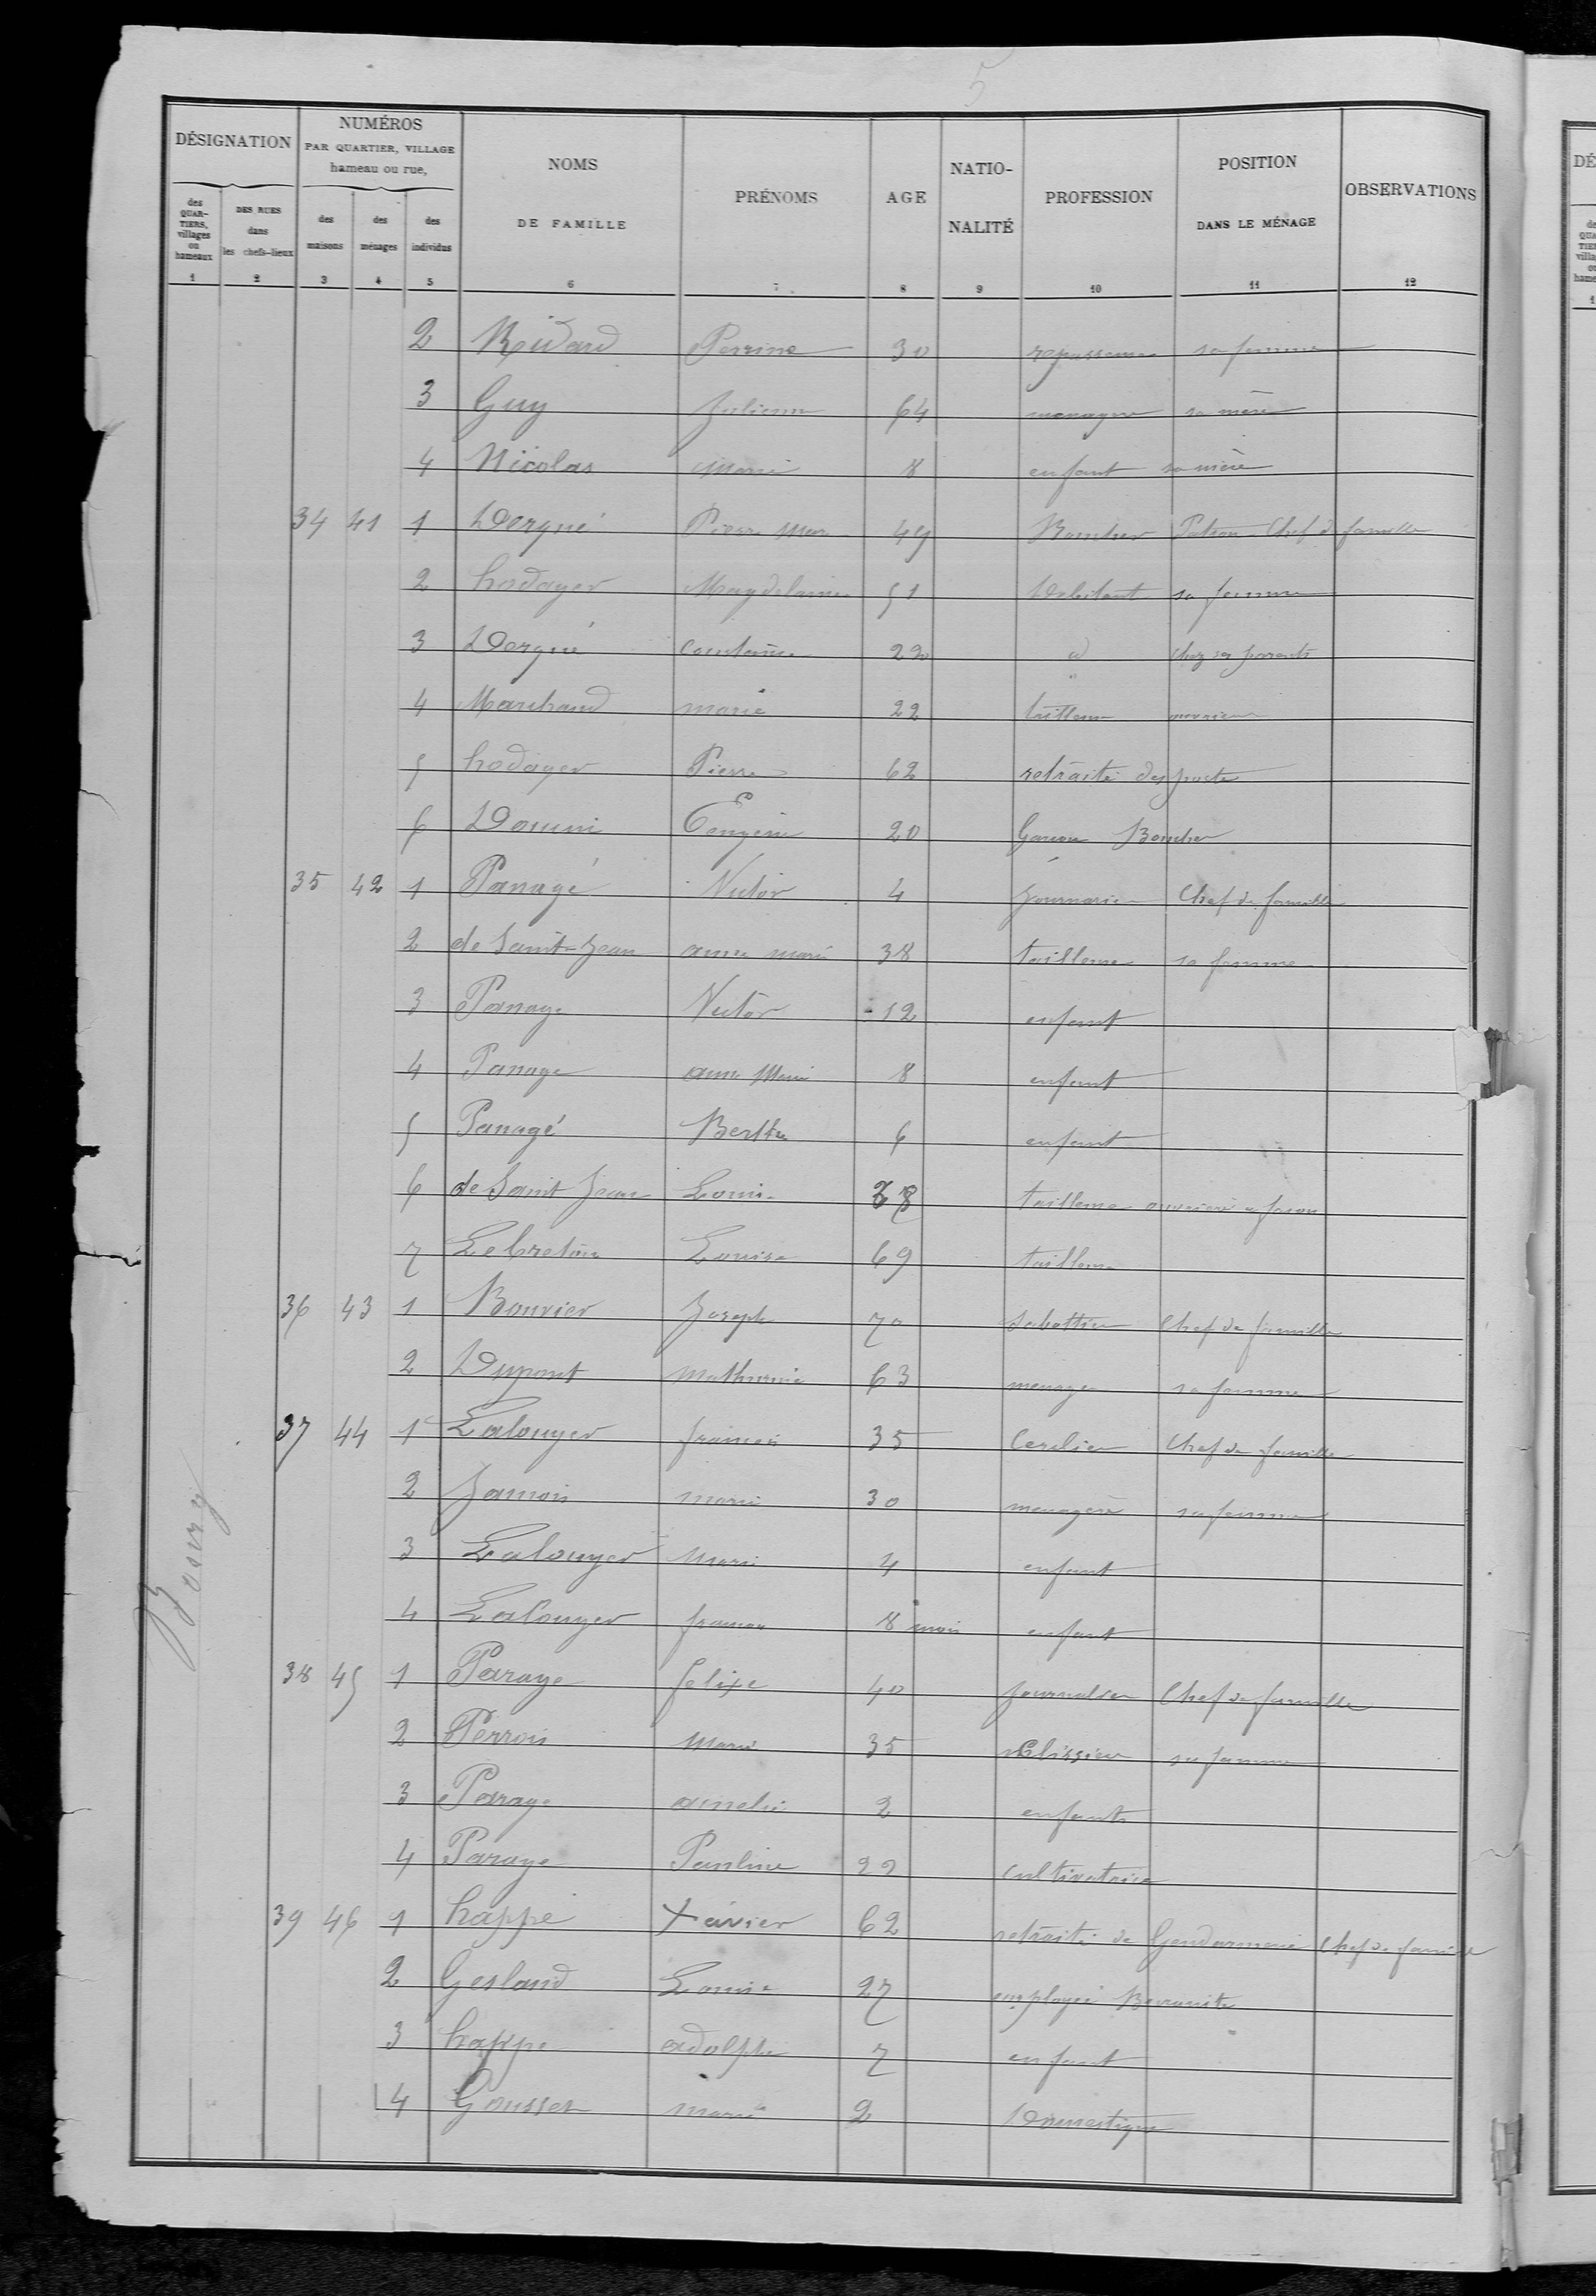 5
DÉSIGNATION
NUMÉROS PAR QUARTIER, VILLAGE hameau ou rue,
NOMS DE FAMILLE
PRÉNOMS
AGE
NATIO-NALITÉ
PROFESSION
POSITION DANS LE MÉNAGE
OBSERVATIONS
des QUAR-TIERS, villages ou hameaux
DES RUES dans les chefs-lieux
des maisons
des ménages
des individus
1 2 3 4 5 6 7 8 9 10 11 12
2 Perrine 30 sa femme
3 Guy Julienne 64 menagere sa mère
4 Nicolas Marie 8 enfant sa nièce
34 41 1 Dergué Pierre Mar 49 Boucher Patron Chef de famille
2 hodayer Magdelaine 51 Debitant sa femme
3 Dergué 22 d chez ses parents
4 Marchand marie 22
5 hodayer Pierre 62 retraité des poste
6 20 Garcon Boucher
35 42 1 Panagé Victor 4 Chef de famille
2 de Saint-Jean anne marie 38 tailleuse sa femme
3 Panage Victor 12 enfant
4 Panage anne Marie 8 enfant
5 Panagé Berthe 6 enfant
6 de Saint Jean Louise tailleuse
7 Lebreton Louise 69 tailleuse
36 43 1 Bouvier Joseph 70 Sabottier Chef de famille
2 Dupont Mathurine 63 sa femme
Bourg
37 44 1 Lalouyer francois 35 Chef de famille
2 Jamois marie 30 menagère sa femme
3 Lalouyer Marie 4 enfant
4 Lalouyer 8 mois enfant
38 45 1 Paraye felixe 40 Chef de famille
2 Perrois Marie 35 sa femme
3 Paraye amelie 2 enfants
4 Paraye Pauline 22 cultivatrice
39 46 1 happe Xavier 62 retraité de Gendarmerie Chef de famille
2 Gesland Louise 27
3 happe adolphe 7 enfant
4 Gousset marie 2 Domestique